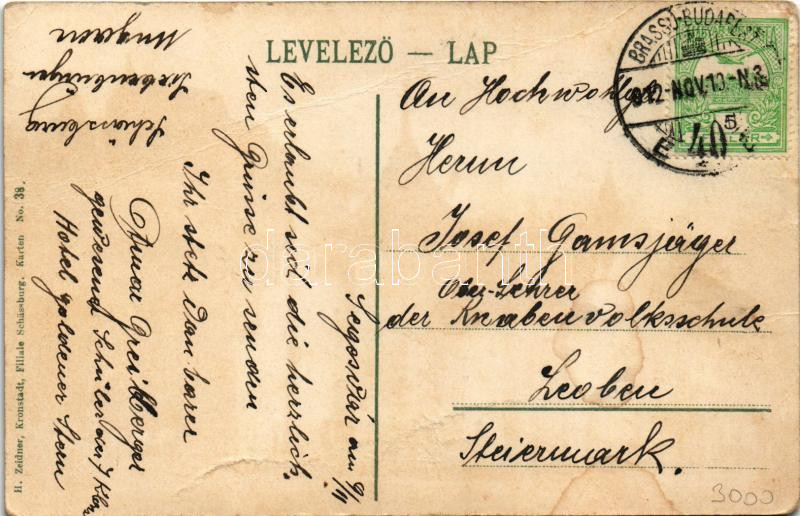 LEVELEZÖ — LAP
BRASSÓ-BUDAPEST
912-NOV.10-N3
40
E
Segesvár am 9/11
Es erlaubt sich die herzlich-
sten Grüsse zu senden
Ihr stets dankbarer
Greiberger
gewesener Schüler der I Kl.
Hotel goldener Stern
Schässburg
Siebenbürgen
Ungarn
An Hochwohlgeb
Herrn
Josef Gamsjäger
Ober-Lehrer
der Knabenvolksschule
Leoben
Steiermark.
H. Zeidner, Kronstadt, Filiale Schässburg. Karten No. 38.
darabanth
3000